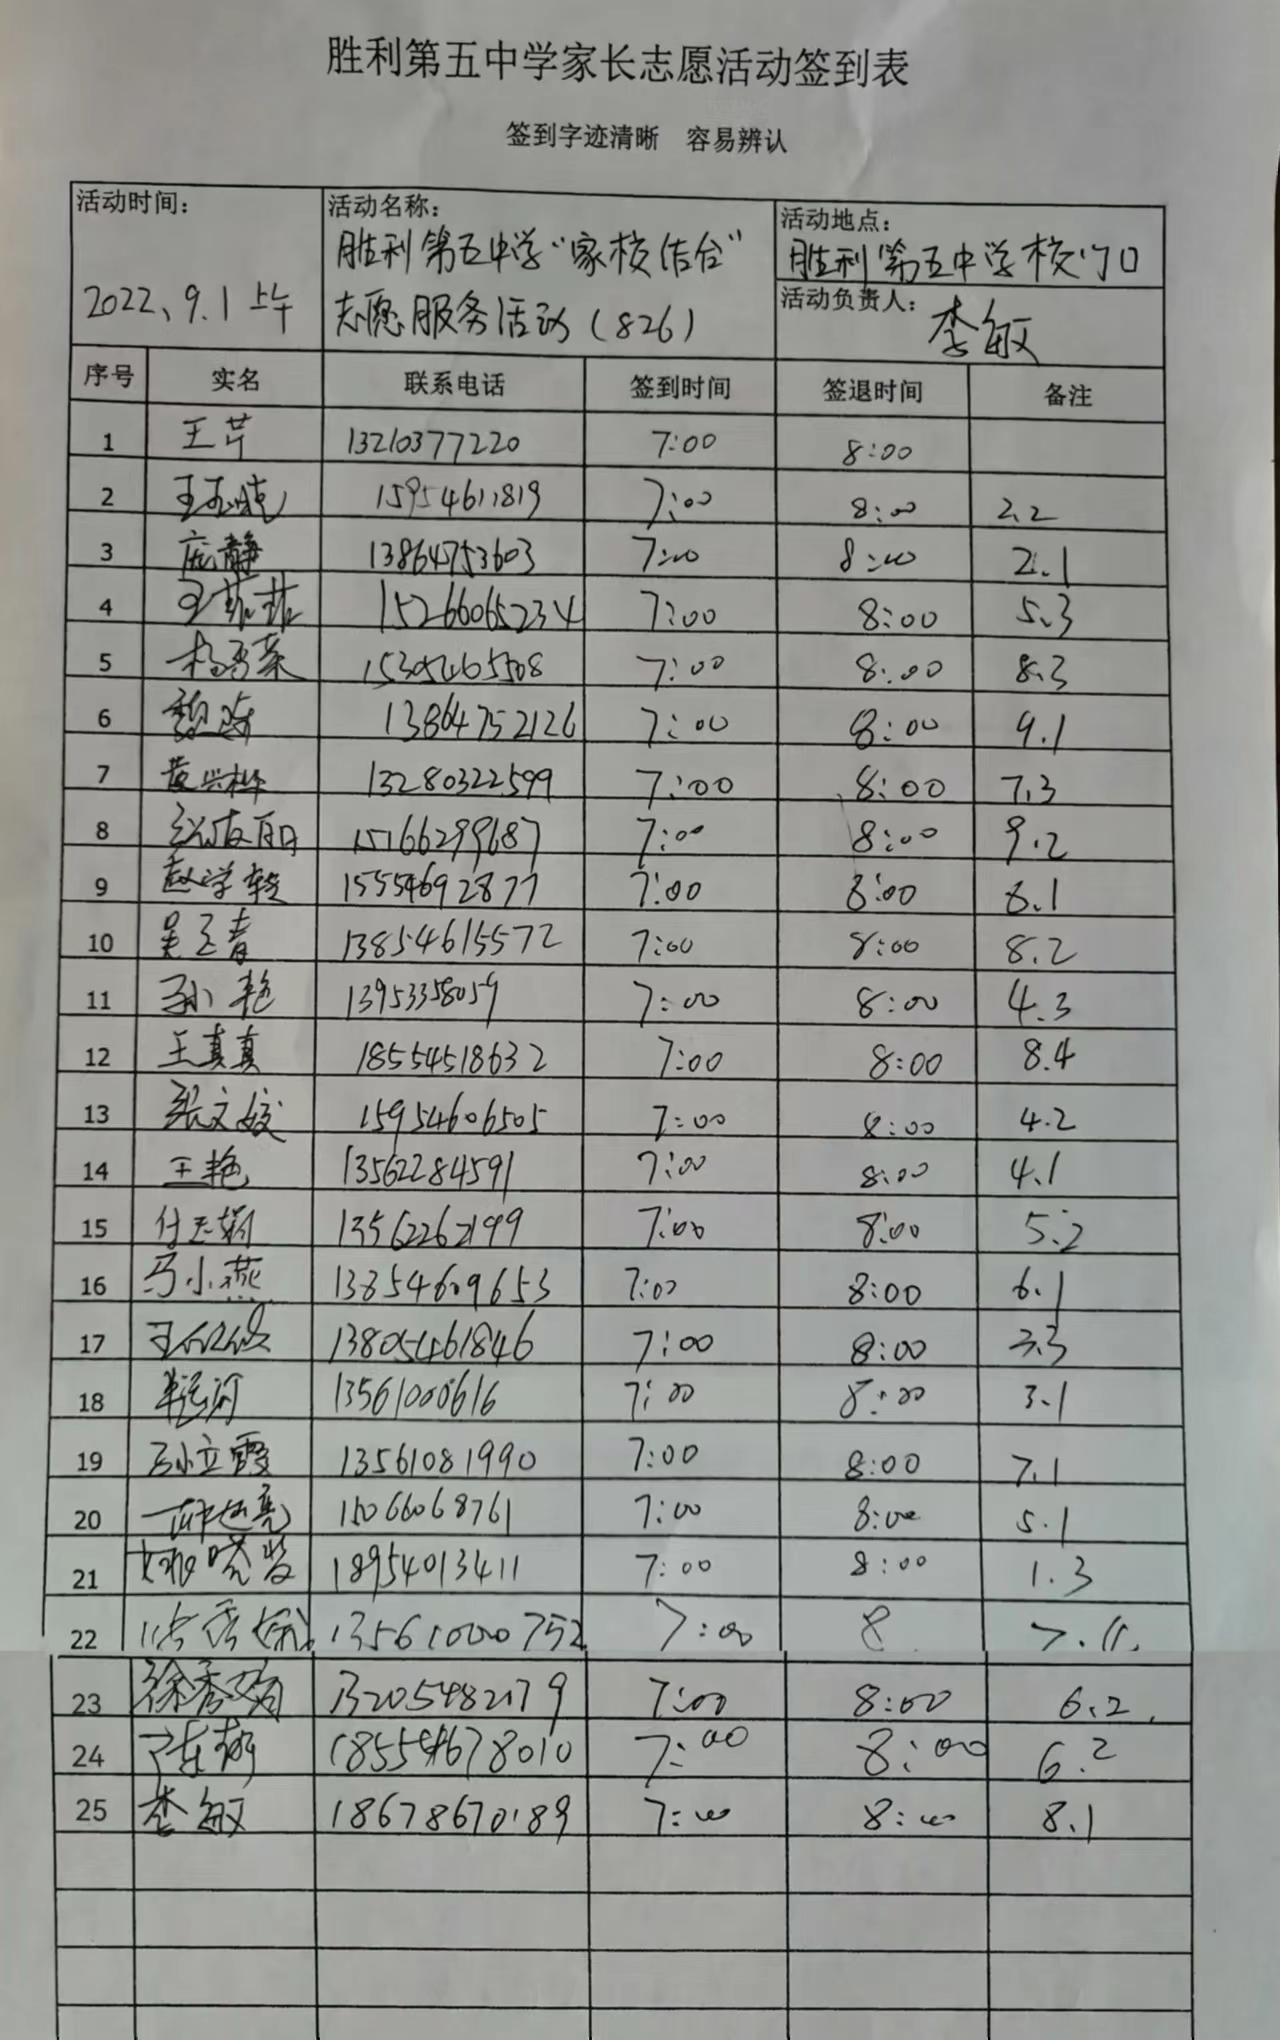 胜利第五中学家长志愿活动签到表
签到字迹清晰 容易辨认
活动时间： 活动名称： 活动地点：
胜利第五中学“家校结合” 胜利第五中学校门口
2022、9.1上午 志愿服务活动（826） 活动负责人： 李敏
序号 实名 联系电话 签到时间 签退时间 备注
1 王芹 13210377220 7:00 8:00
2 15954611819 7:00 8:00 2.2
3 庞静 13864753603 7:00 8:00 2.1
4 王菲菲 15266065234 7:00 8:00 5.3
5 15305465508 7:00 8:00 8.3
6 13864752126 7:00 8:00 9.1
7 黄兴桦 13280322599 7:00 8:00 7.3
8 15166299687 7:00 8:00 9.2
9 赵学敏 15554692877 7:00 8:00 8.1
10 吴玉春 13854615572 7:00 8:00 8.2
11 孙艳 13953358059 7:00 8:00 4.3
12 王真真 18554518632 7:00 8:00 8.4
13 张文姣 15954606505 7:00 8:00 4.2
14 王艳 13562284591 7:00 8:00 4.1
15 付玉娟 13562262199 7:00 8:00 5.2
16 马小燕 13854609653 7:00 8:00 6.1
17 13805461846 7:00 8:00 3.3
18 13561000616 7:00 8:00 3.1
19 孙立霞 13561081990 7:00 8:00 7.1
20 15066068761 7:00 8:00 5.1
21 18954013411 7:00 8:00 1.3
22 13561000752 7:00 8
23 徐秀菊 13205482179 7:00 8:00 6.2
24 陈娜 18554678010 7:00 8:00 6.2
25 李敏 18678670189 7:00 8:00 8.1